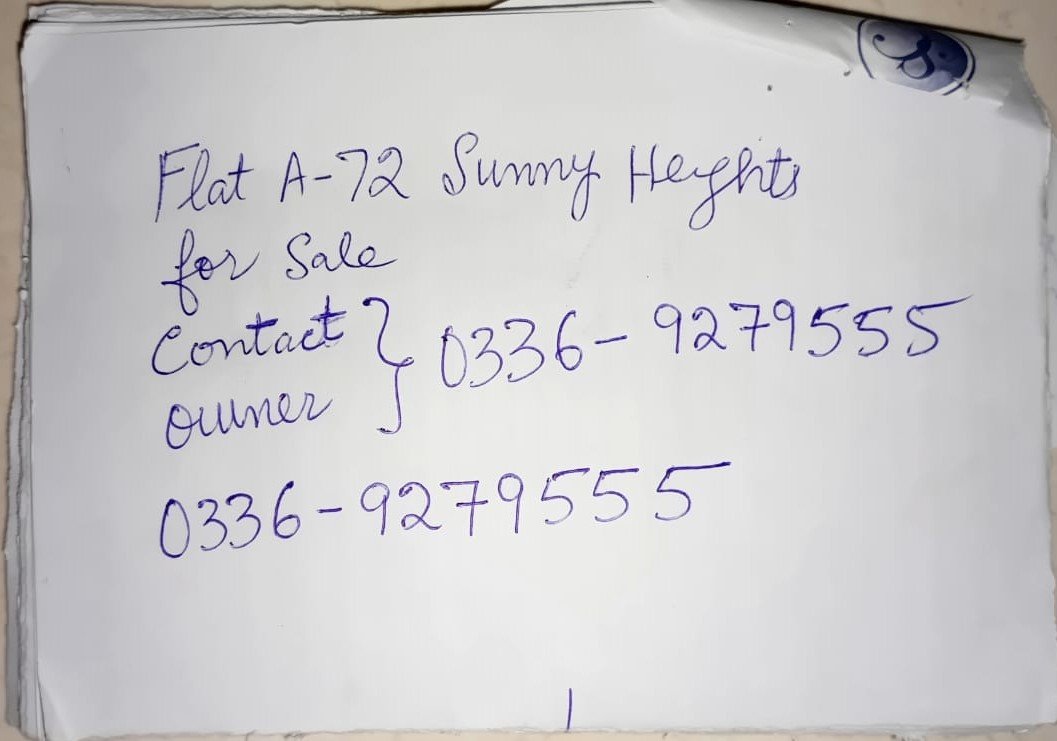 Flat A-72 Sunny Heyhts
for Sale
Contact } 0336-9279555
owner
0336-9279555